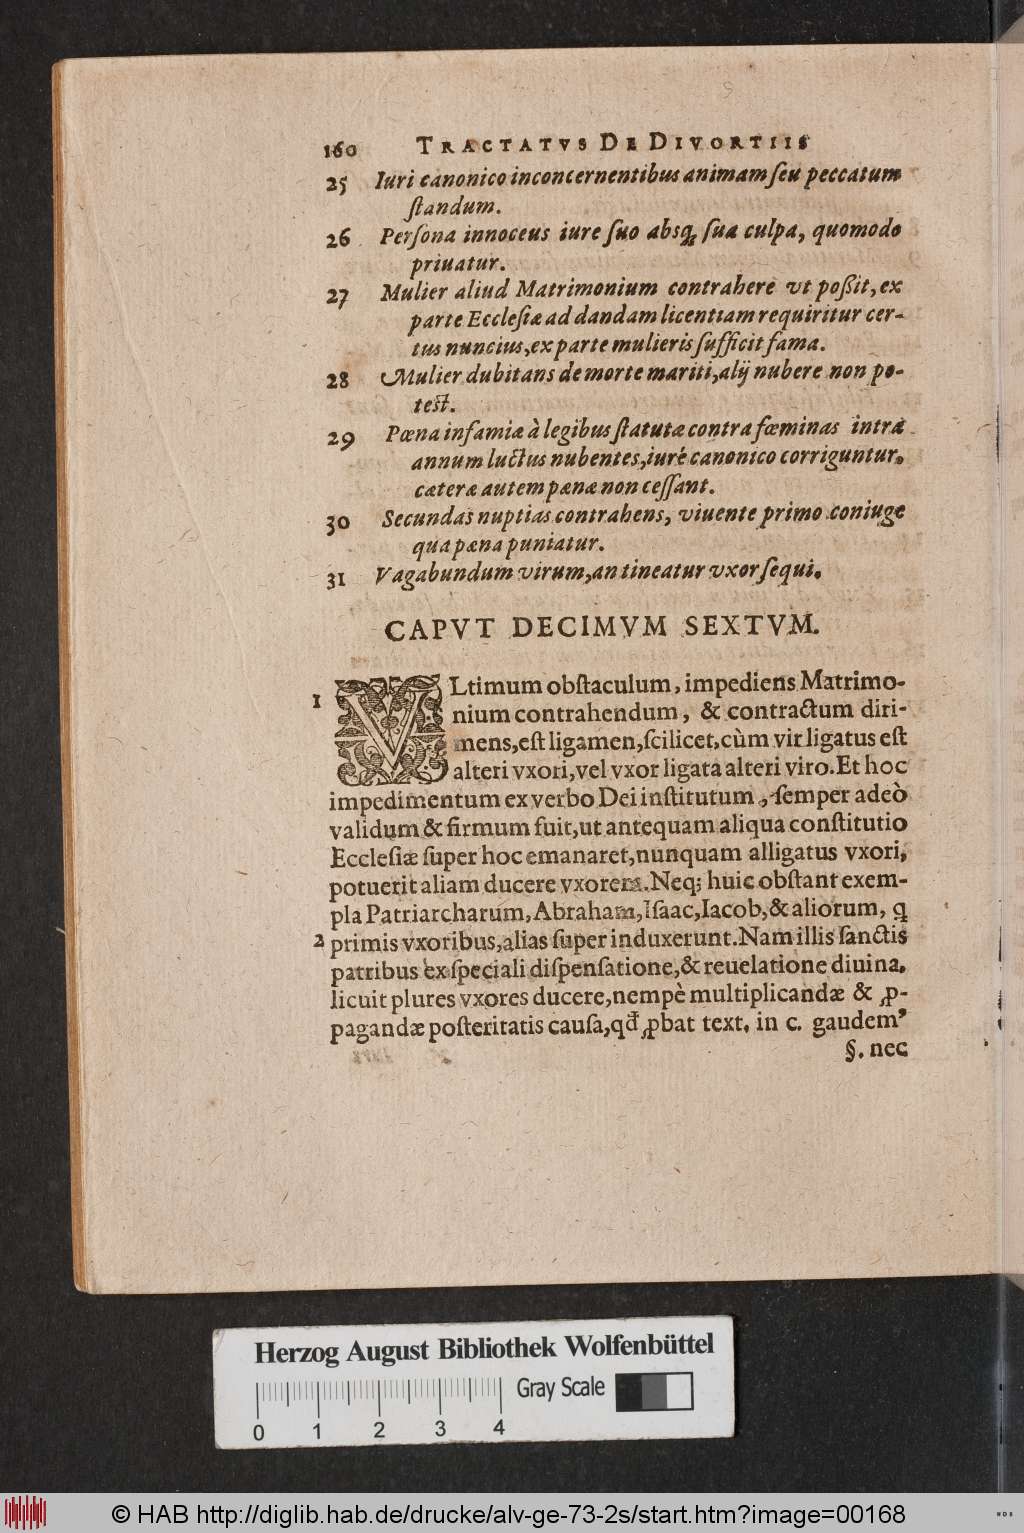 160 TRACTATVS DE DIVORTIIS
25 Iuri canonico in concernentibus animam ſeu peccatum
ſtandum.
26 Perſona innoceus iure ſuo absq; ſua culpa, quomodo
priuatur.
27 Mulier aliud Matrimonium contrahere vt poßit, ex
parte Eccleſiæ ad dandam licentiam requiritur cer-
tus nuncius, ex parte mulieris ſufficit fama.
28 Mulier dubitans de morte mariti, alij nubere non po-
teſt.
29 Pœna infamiæ à legibus ſtatutæ contra fœminas intra
annum luctus nubentes, iuré canonico corriguntur.
cæteræ autem pænæ non ceſſant.
30 Secundas nuptias contrahens, viuente primo coniuge
qua pæna puniatur.
31 Vagabundum virum, an tineatur vxor ſequi.
CAPVT DECIMVM SEXTVM.
1 VLtimum obſtaculum, impediens Matrimo-
nium contrahendum, & contractum diri-
mens, eſt ligamen, ſcilicet, cùm vir ligatus eſt
alteri vxori, vel vxor ligata alteri viro. Et hoc
impedimentum ex verbo Dei inſtitutum, ſemper adeò
validum & firmum fuit, ut antequam aliqua conſtitutio
Eccleſiæ ſuper hoc emanaret, nunquam alligatus vxori,
potuerit aliam ducere vxorem. Neq; huic obſtant exem-
pla Patriarcharum, Abraham, Iſaac, Iacob, & aliorum, ꝗ
2 primis vxoribus, alias ſuper induxerunt. Nam illis ſanctis
patribus ex ſpeciali diſpenſatione, & reuelatione diuina.
licuit plures vxores ducere, nempè multiplicandæ & ꝓ-
pagandæ poſteritatis cauſa, qđ ꝓbat text. in c. gaudemꝰ
§. nec
Herzog August Bibliothek Wolfenbüttel
Gray Scale
0 1 2 3 4
© HAB http://diglib.hab.de/drucke/alv-ge-73-2s/start.htm?image=00168